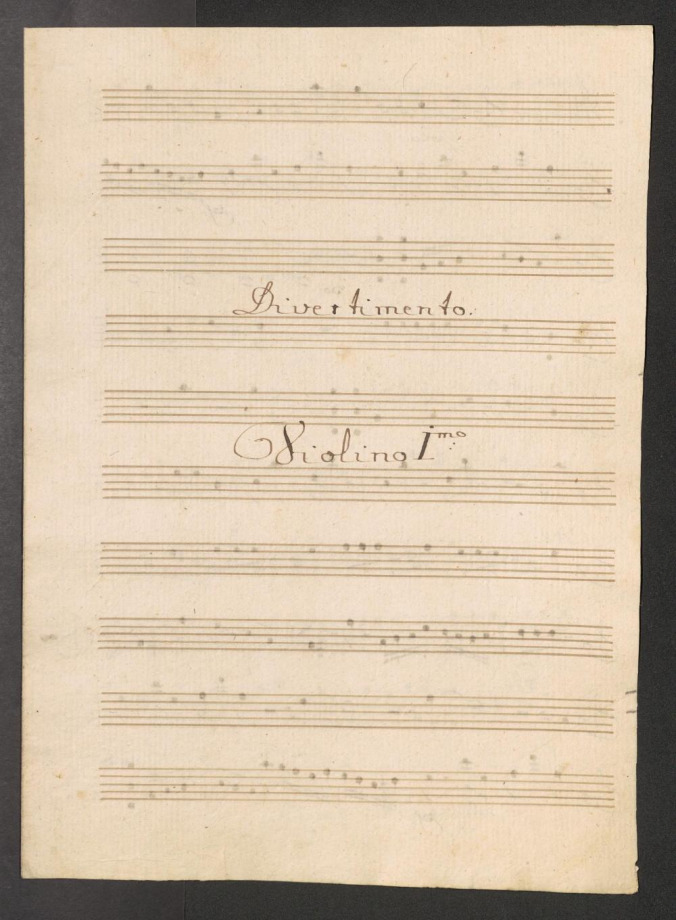 Divertimento.
Violino Imo: